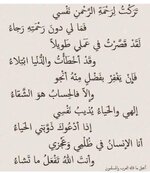 تركتُ لرحمةِ الرحمنِ نفسي
فما لي دون رحمتِهِ رجاءُ
لقد قصَّرتُ في عملي طويلاً
وقد أخطأتُ والدنيا ابتلاءُ
فإن يغفر بفضلٍ منهُ أنجو
وإلا فالحسابُ هو الشقاءُ
إلهي والحياءُ يُذيبُ نفسي
إذا أدعوكَ ذوَّبني الحياءُ
أنا الإنسانُ في ظلمي وعجزي
وأنتَ اللهُ تفعلُ ما تشاءُ